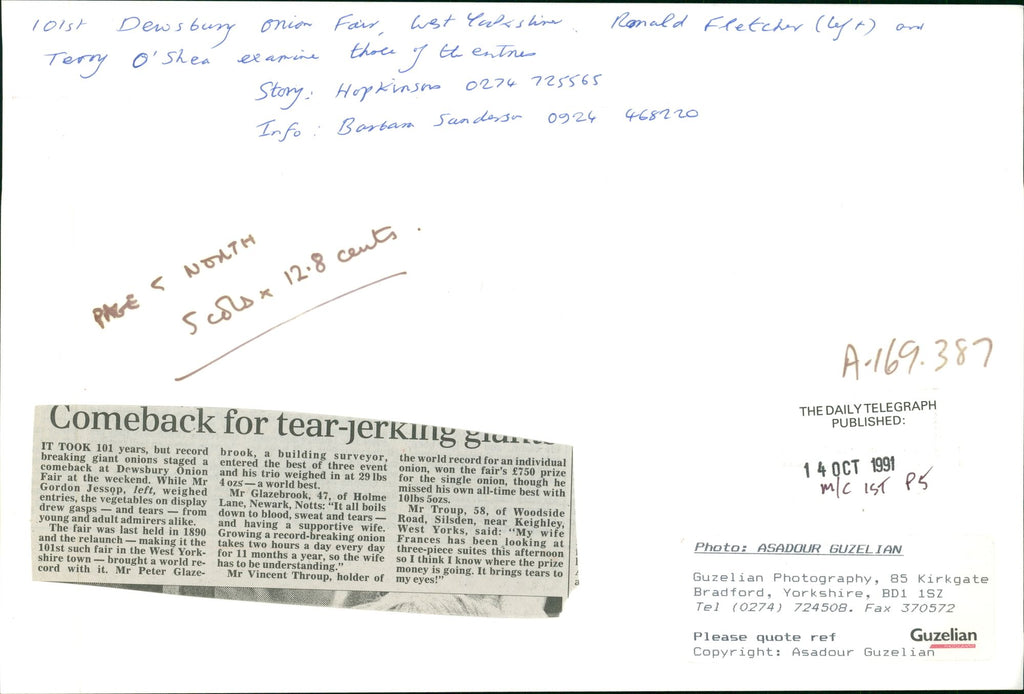 101st Dewsbury Onion Fair, West Yorkshire. Ronald Fletcher (left) and
Terry O'Shea examine three of the entries
Story: Hopkinsons 0274 725565
Info: Barbara Sanderson 0924 468220
PAGE 5 NORTH
5 cols x 12.8 cents.
A.169.387
THE DAILY TELEGRAPH
PUBLISHED:
14 OCT 1991
M/C 1ST P5
Comeback for tear-jerking giants
IT TOOK 101 years, but record
breaking giant onions staged a
comeback at Dewsbury Onion
Fair at the weekend. While Mr
Gordon Jessop, left, weighed
entries, the vegetables on display
drew gasps — and tears — from
young and adult admirers alike.
The fair was last held in 1890
and the relaunch — making it the
101st such fair in the West York-
shire town — brought a world re-
cord with it. Mr Peter Glaze-
brook, a building surveyor,
entered the best of three event
and his trio weighed in at 29lbs
4 ozs — a world best.
Mr Glazebrook, 47, of Holme
Lane, Newark, Notts: "It all boils
down to blood, sweat and tears —
and having a supportive wife.
Growing a record-breaking onion
takes two hours a day every day
for 11 months a year, so the wife
has to be understanding."
Mr Vincent Throup, holder of
the world record for an individual
onion, won the fair's £750 prize
for the single onion, though he
missed his own all-time best with
10lbs 5ozs.
Mr Troup, 58, of Woodside
Road, Silsden, near Keighley,
West Yorks, said: "My wife
Frances has been looking at
three-piece suites this afternoon
so I think I know where the prize
money is going. It brings tears to
my eyes!"
Photo: ASADOUR GUZELIAN
Guzelian Photography, 85 Kirkgate
Bradford, Yorkshire, BD1 1SZ
Tel (0274) 724508. Fax 370572
Please quote ref
Copyright: Asadour Guzelian
Guzelian